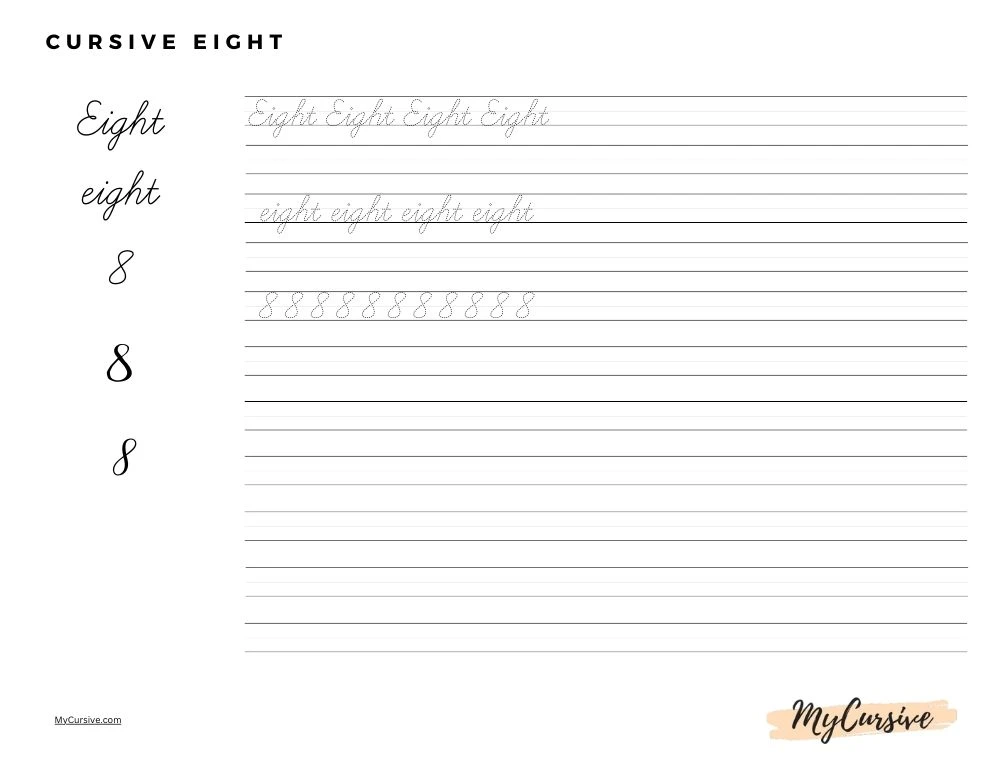 CURSIVE EIGHT
Eight Eight Eight Eight Eight
eight eight eight eight eight
8 8 8 8 8 8 8 8 8 8 8 8
8
8
MyCursive.com MyCursive